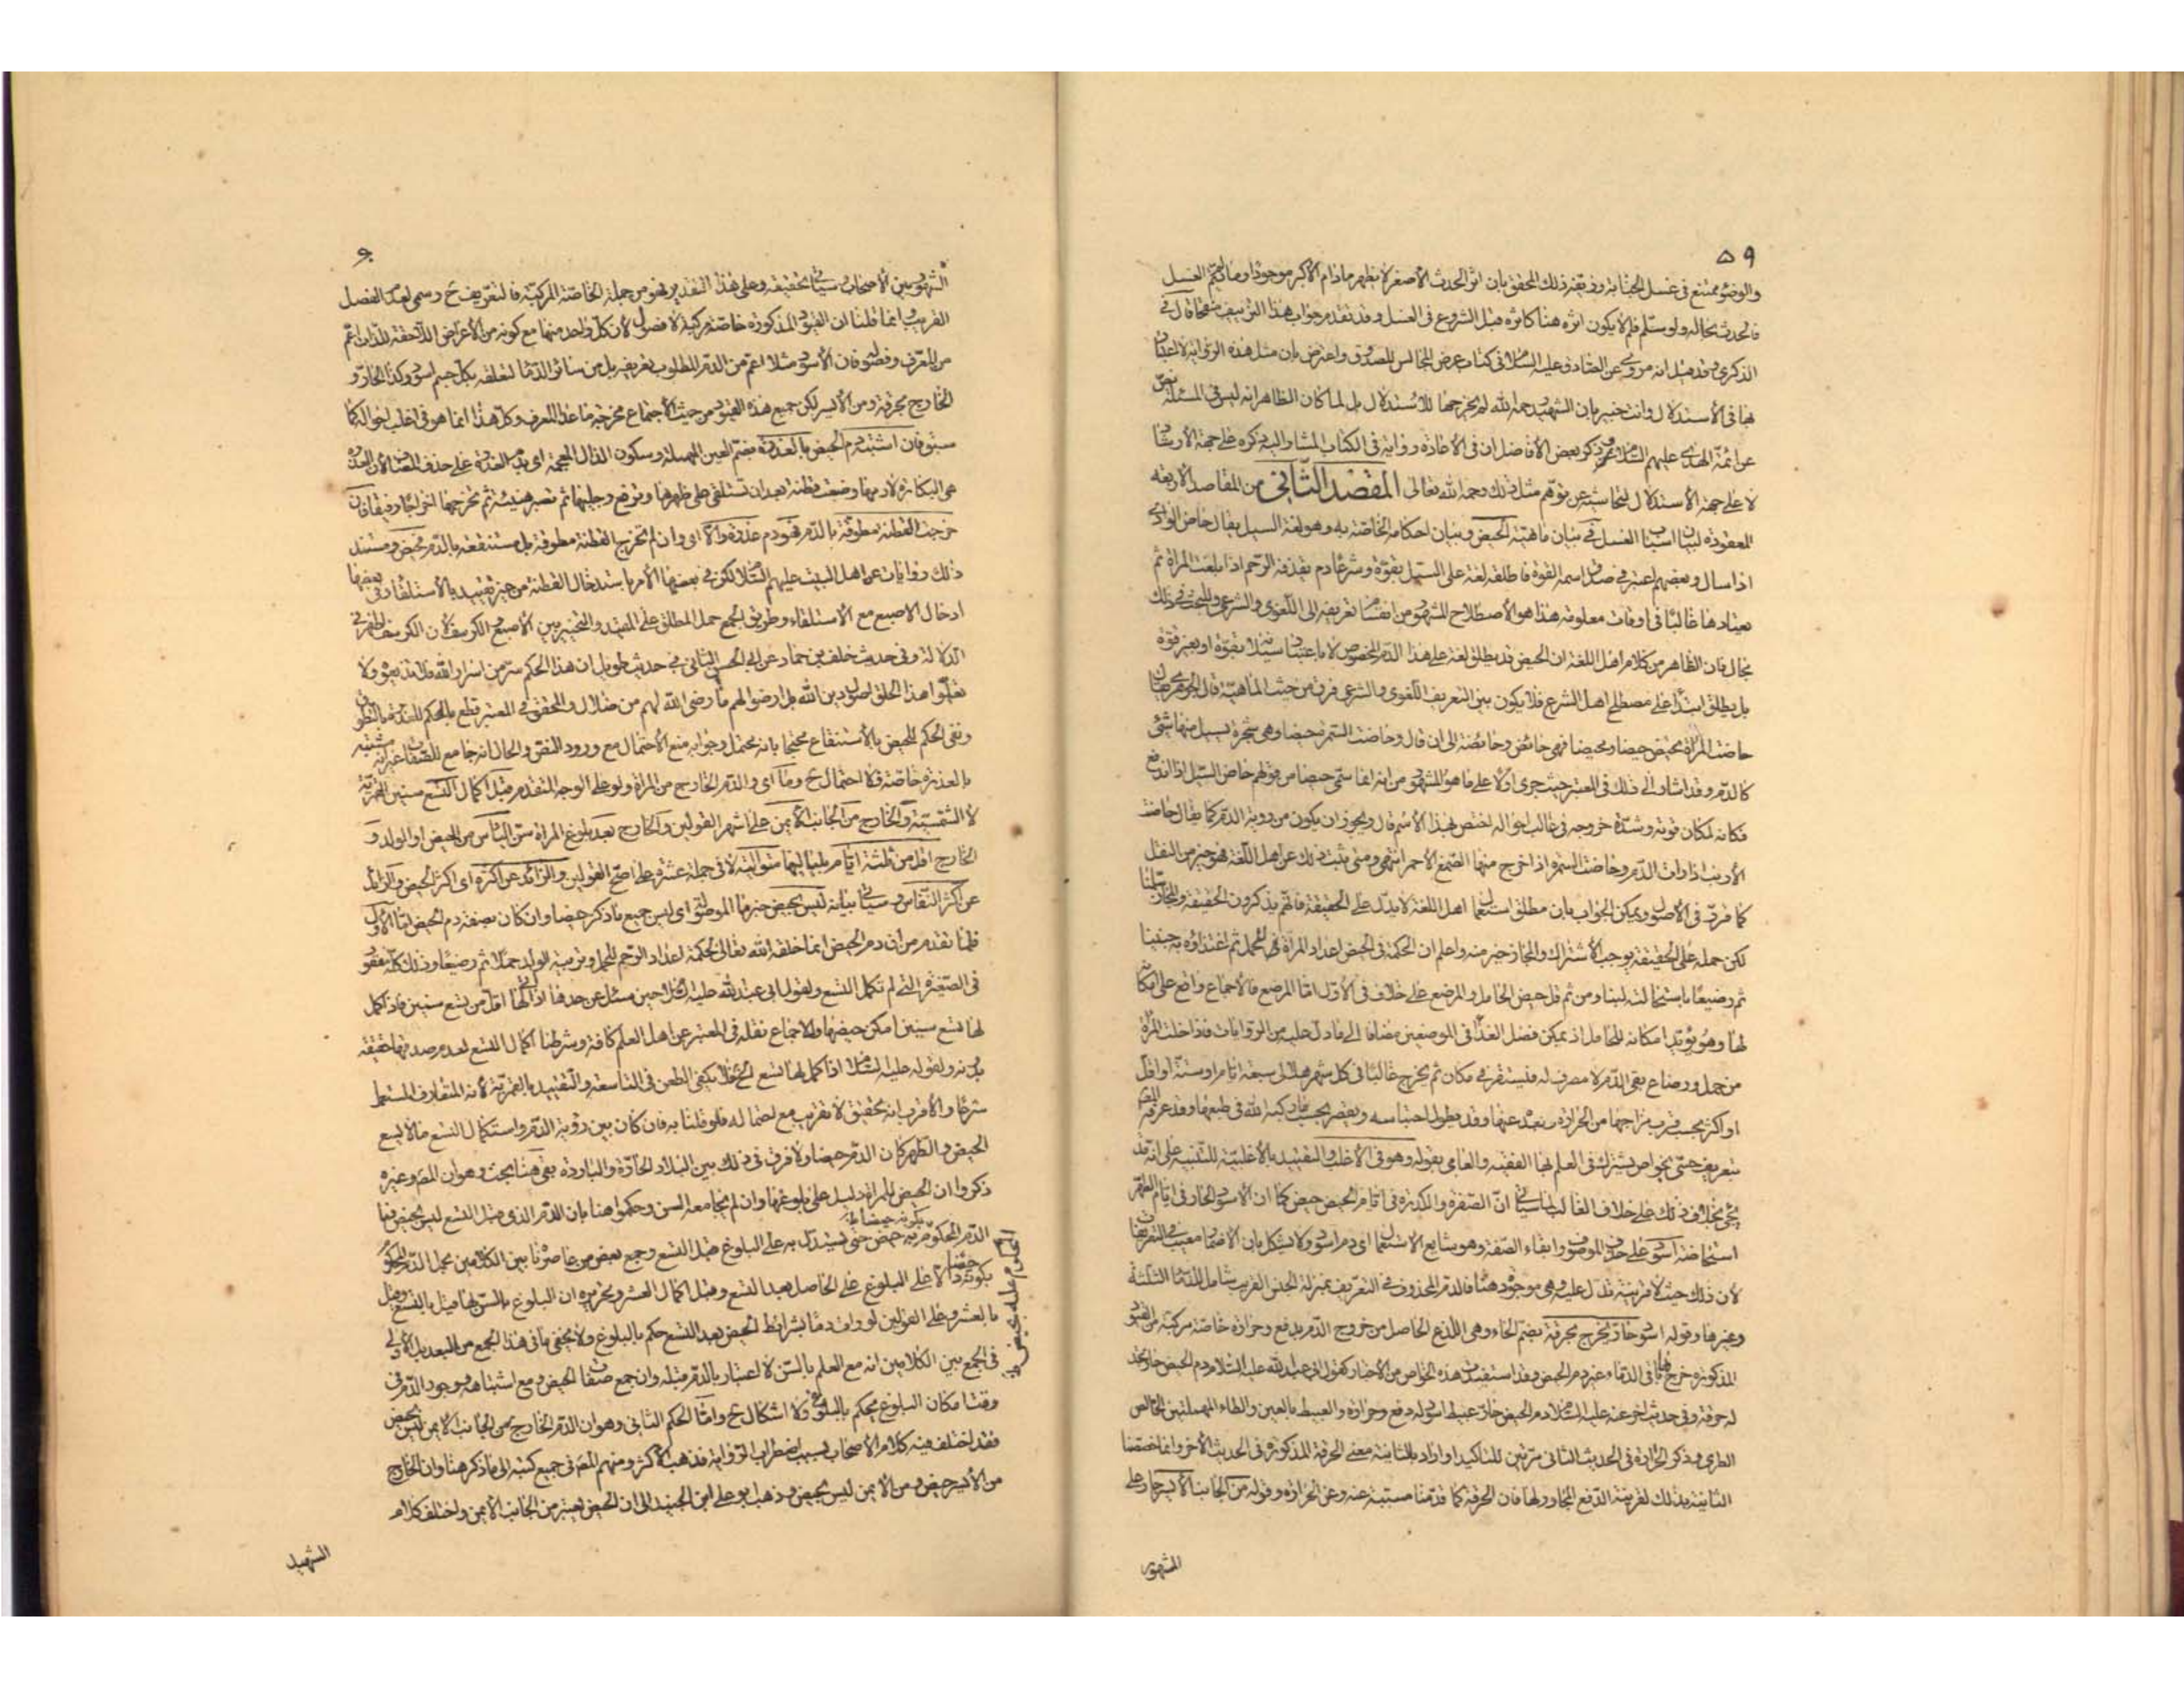 ٥٩
والوضوء ممتنع فى غسل الجنابة وزيفه ذلك المحقق بان اثر الحدث الأصغر لا يظهر مادام الأكبر موجودا وما لم يتم الغسل
فالحدث بحاله ولو سلم فلم لا يكون اثره هنا كاثره قبل الشروع فى الغسل وقد تقدم جواب هذا التزييف منقحا قال فى
الذكرى وقد قيل انه مروى عن الصادق عليه السلام فى كتاب عرض المجالس للصدوق واعترض بان مثل هذه الرواية لا اعتبار
بها فى الأستدلال وانت خبير بان الشهيد رحمه الله لم يخرجها للاستدلال بل لما كان الظاهر انه ليس فى المسئلة نص
عن ائمة الهدى عليهم السلام وذكر بعض الأفاضل ان فى الأعادة رواية فى الكتاب المشار اليه ذكره على جهة الأرشاد
لا على جهة الأستدلال لتحاشيه عن توهم مثل ذلك رحمه الله تعالى المقصد الثانى من المقاصد الأربعة
المعقودة لبيان اسباب الغسل فى بيان ماهية الحيض وبيان احكامه الخاصة به وهو لغة السيل يقال حاض الوادى
اذا سال وبعضهم اعتبر فى صدق اسمه القوة فاطلقه لغة على السيل بقوة وشرعا دم يقذفه الرحم اذا بلغت المراة ثم
يعتادها غالبا فى اوقات معلومة هذا هو الأصطلاح المشهور من انقسام تعريفه الى اللغوى والشرعى وللبحث فى ذلك
مجال فان الظاهر من كلام اهل اللغة ان الحيض قد يطلق لغة على هذا الدم المخصوص لا باعتبار سيلانه بقوة او بغير قوة
بل يطلق ابتداء على مصطلح اهل الشرع فلا يكون بين التعريف اللغوى والشرعى فرق من حيث الماهية قال الجوهرى يقال
حاضت المراة تحيض حيضا ومحيضا فهى حائض وحائضة الى ان قال وحاضت السمرة حيضا وهى شجرة يسيل منها شئ
كالدم وقد اشار الى ذلك فى المعتبر حيث جرى اولا على ما هو المشهور من انه انما سمى حيضا من قولهم حاض السيل اذا اندفع
فكانه لمكان قوته وشدة خروجه فى غالب احواله اختص بهذا الأسم قال ويجوز ان يكون من روية الدم كما يقال حاضت
الأرنب اذا رات الدم وحاضت السمرة اذا خرج منها الصمغ الأحمر انتهى ومتى ثبت ذلك عن اهل اللغة فهو خير من النقل
كما قرر فى الأصول ويمكن الجواب بان مطلق استعمال اهل اللغة لا يدل على الحقيقة فانهم يذكرون الحقيقة والمجاز سلمنا
لكن حمله على الحقيقة يوجب الأشتراك والمجاز خير منه واعلم ان الحكمة فى الحيض اعداد المراة للحمل ثم اغتذاؤه به جنينا
ثم رضيعا باستحالته لبنا ومن ثم قل حيض الحامل والمرضع على خلاف فى الأول اما المرضع فالأجماع واقع على امكانه
لها وهو يؤيد امكانه للحامل اذ يمكن فضل الغذاء فى الموضعين مضافا الى ما دل عليه من الروايات فاذا خلت المراة
من حمل ورضاع بقى الدم لا مصرف له فيستقر فى مكان ثم يخرج غالبا فى كل شهر هلالى سبعة ايام او ستة او اقل
او اكثر بحسب قرب مزاجها من الحرارة وبعده عنها وقد يطول احتباسه ويقصر بحسب ما ركبه الله فى طبعها وقد عرفه المص
بتعريف حتى بخواص يشترك فى العلم لها الفقيه والعامى بقوله وهو فى الأغلب والتقييد بالأغلبية للتنبيه على انه قد
يجئ بخلاف ذلك على خلاف الغالب لما سياتى ان الصفرة والكدرة فى ايام الحيض حيض كما ان الأسود الحار فى ايام الطهر
استحاضة اسود على حذف الموصوف وابقاء الصفة وهو شايع الأستعمال اى دم اسود ولا يشكل بان الأضمار معيب فى التعريفات
لأن ذلك حيث لا قرينة تدل عليه وهى موجودة هنا فالدم المحذوف فى التعريف بمنزلة الجنس القريب شامل للدماء الثلثة
وغيرها وقوله اسود حار يخرج بحرقة بضم الحاء وهى اللذع الحاصل من خروج الدم بدفع وحرارة خاصة مركبة من القيود
المذكورة خرج بها باقى الدماء وغير دم الحيض وقد استفيدت هذه الخواص من الأخبار كقول ابى عبد الله عليه السلام دم الحيض حار تجد
له حرقة وفى حديث اخر عنه عليه السلام دم الحيض حار عبيط اسود له دفع وحرارة والعبيط بالعين والطاء المهملتين الخالص
الطرى وذكر الحرارة فى الحديث الثانى مرتين للتاكيد او اراد بالثانية معنى الحرقة المذكورة فى الحديث الأخر وانما خصصنا
الثانية بذلك لقرينة الدفع المجاور لها فان الحرقة كما قدمنا مسببة عنه وعن الحرارة وقوله من الجانب الأيسر جار على
المشهور
٦٠
المشهور بين الأصحاب سياتى تحقيقه وعلى هذا التقدير هو من جملة الخاصة المركبة فالتعريف ح رسمى لعدم الفصل
القريب وانما قلنا ان القيود المذكورة خاصة مركبة لا فصول لأن كل واحد منها مع كونه من الأعراض اللاحقة للذات اعم
من المعرف وفصله فان الأسود مثلا اعم من الدم المطلوب تعريفه بل من سائر الدماء لتعلقه بكل جسم اسود وكذا الحار و
الخارج بحرقة ومن الأيسر لكن جميع هذه القيود من حيث الأجتماع مخرجة ما عدا المعرف وكل هذا انما هو فى اغلب احواله كما
سبق فان اشتبه دم الحيض بالعذرة بضم العين المهملة وسكون الذال المعجمة اى بدم العذرة على حذف المضاف لأن العذرة
هى البكارة لا دمها وضعت قطنة بعد ان تستلقى على ظهرها وترفع رجليها ثم تصبر هنيئة ثم تخرجها اخراجا رفيقا فان
خرجت القطنة مطوقة بالدم فهو دم عذرة والا اى وان لم تخرج القطنة مطوقة بل مستنقعة بالدم فحيض ومستند
ذلك روايات عن اهل البيت عليهم السلام لكن فى بعضها الأمر باستدخال القطنة من غير تقييد بالأستلقاء وفى بعضها
ادخال الاصبع مع الاستلقاء وطريق الجمع حمل المطلق على المقيد والتخيير بين الأصبع والكرسف الا ان الكرسف اظهر فى
الدلالة وفى حديث خلف بن حماد عن ابى الحسن الثانى فى حديث طويل ان هذا الحكم سر من اسرار الله فلا تذيعوه ولا
تعلموا هذا الخلق اصول دين الله بل ارضوا لهم ما رضى الله لهم من ضلال والمحقق فى المعتبر قطع بالحكم للعذرة بالتطوق
ونفى الحكم للحيض بالأستنقاع محتجا بانه محتمل وجوابه منع الأحتمال مع ورود النص والحال انه جامع للصفات غير انه مشتبه
بالعذرة خاصة فلا احتمال ح وما اى والدم الخارج من المراة ولو على الوجه المتقدم قبل اكمال التسع سنين القمرية
لا الشمسية والخارج من الجانب الأيمن على اشهر القولين والخارج بعد بلوغ المراة سن الياس من الحيض او الولد و
الخارج اقل من ثلثة ايام بلياليها متوالية لا فى جملة عشرة على اصح القولين والزائد عن اكثره اى اكثر الحيض والزائد
عن اكثر النفاس وسياتى بيانه ليس بحيض خبر ما الموصولة اى ليس جميع ما ذكر حيضا وان كان بصفة دم الحيض اما الأول
فلما تقدم من ان دم الحيض انما خلقه الله تعالى لحكمة اعداد الرحم للحمل وتربية الولد حملا ثم رضيعا وذلك كله مفقود
فى الصغيرة التى لم تكمل التسع ولقول ابى عبد الله عليه السلام حين سئل عن حدها اذا اتى لها اقل من تسع سنين فاذا كمل
لها تسع سنين امكن حيضها والأجماع نقله فى المعتبر عن اهل العلم كافة وشرطنا اكمال التسع لعدم صدقها حقيقة
بدونه ولقوله عليه السلام اذا كمل لها تسع الخ فلا يكفى الطعن فى التاسعة والتقييد بالقمرية لأنه المتعارف المستعمل
شرعا والأقرب انه تحقيق لا تقريب مع احتماله فلو قلنا به فان كان بين رؤية الدم واستكمال التسع ما لا يسع
الحيض والطهر كان الدم حيضا ولا فرق فى ذلك بين البلاد الحارة والباردة بقى هنا بحث وهو ان المص وغيره
ذكروا ان الحيض للمراة دليل على بلوغها وان لم يجامعه السن وحكموا هنا بان الدم الذى قبل التسع ليس بحيض فما
الدم المحكوم بكونه حيضا حتى يستدل به على البلوغ قبل التسع وجمع بعض من عاصرناه بين الكلامين بحمل الدم المحكوم
بكونه حيضا دالا على البلوغ على الحاصل بعد التسع وقبل اكمال العشر وتحريره ان البلوغ بالسن لها قيل بالتسع وقيل
بالعشر وعلى القولين لو رات دما بشرائط الحيض بعد التسع حكم بالبلوغ ولا يخفى ما فى هذا الجمع من البعد بل الأولى
فى الجمع بين الكلامين انه مع العلم بالسن لا اعتبار بالدم قبله وان جمع صفات الحيض ومع اشتباهه ووجود الدم فى
وقت امكان البلوغ يحكم بالبلوغ ولا اشكال ح واما الحكم الثانى وهو ان الدم الخارج من الجانب الأيمن ليس بحيض
فقد اختلف فيه كلام الأصحاب بسبب اضطراب الرواية فذهب الأكثر ومنهم المص فى جميع كتبه الى ما ذكر هنا وان الخارج
من الأيسر حيض ومن الأيمن ليس بحيض وذهب ابو على ابن الجنيد الى ان الحيض يعتبر من الجانب الأيمن واختلف كلام
الشهيد